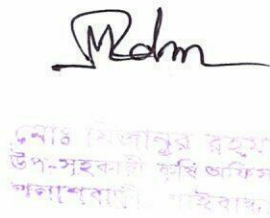 মোঃ মিজানুর রহমা
উপ-সহকারী কৃষি অফিস
পলাশবাড়ী, গাইবান্ধা